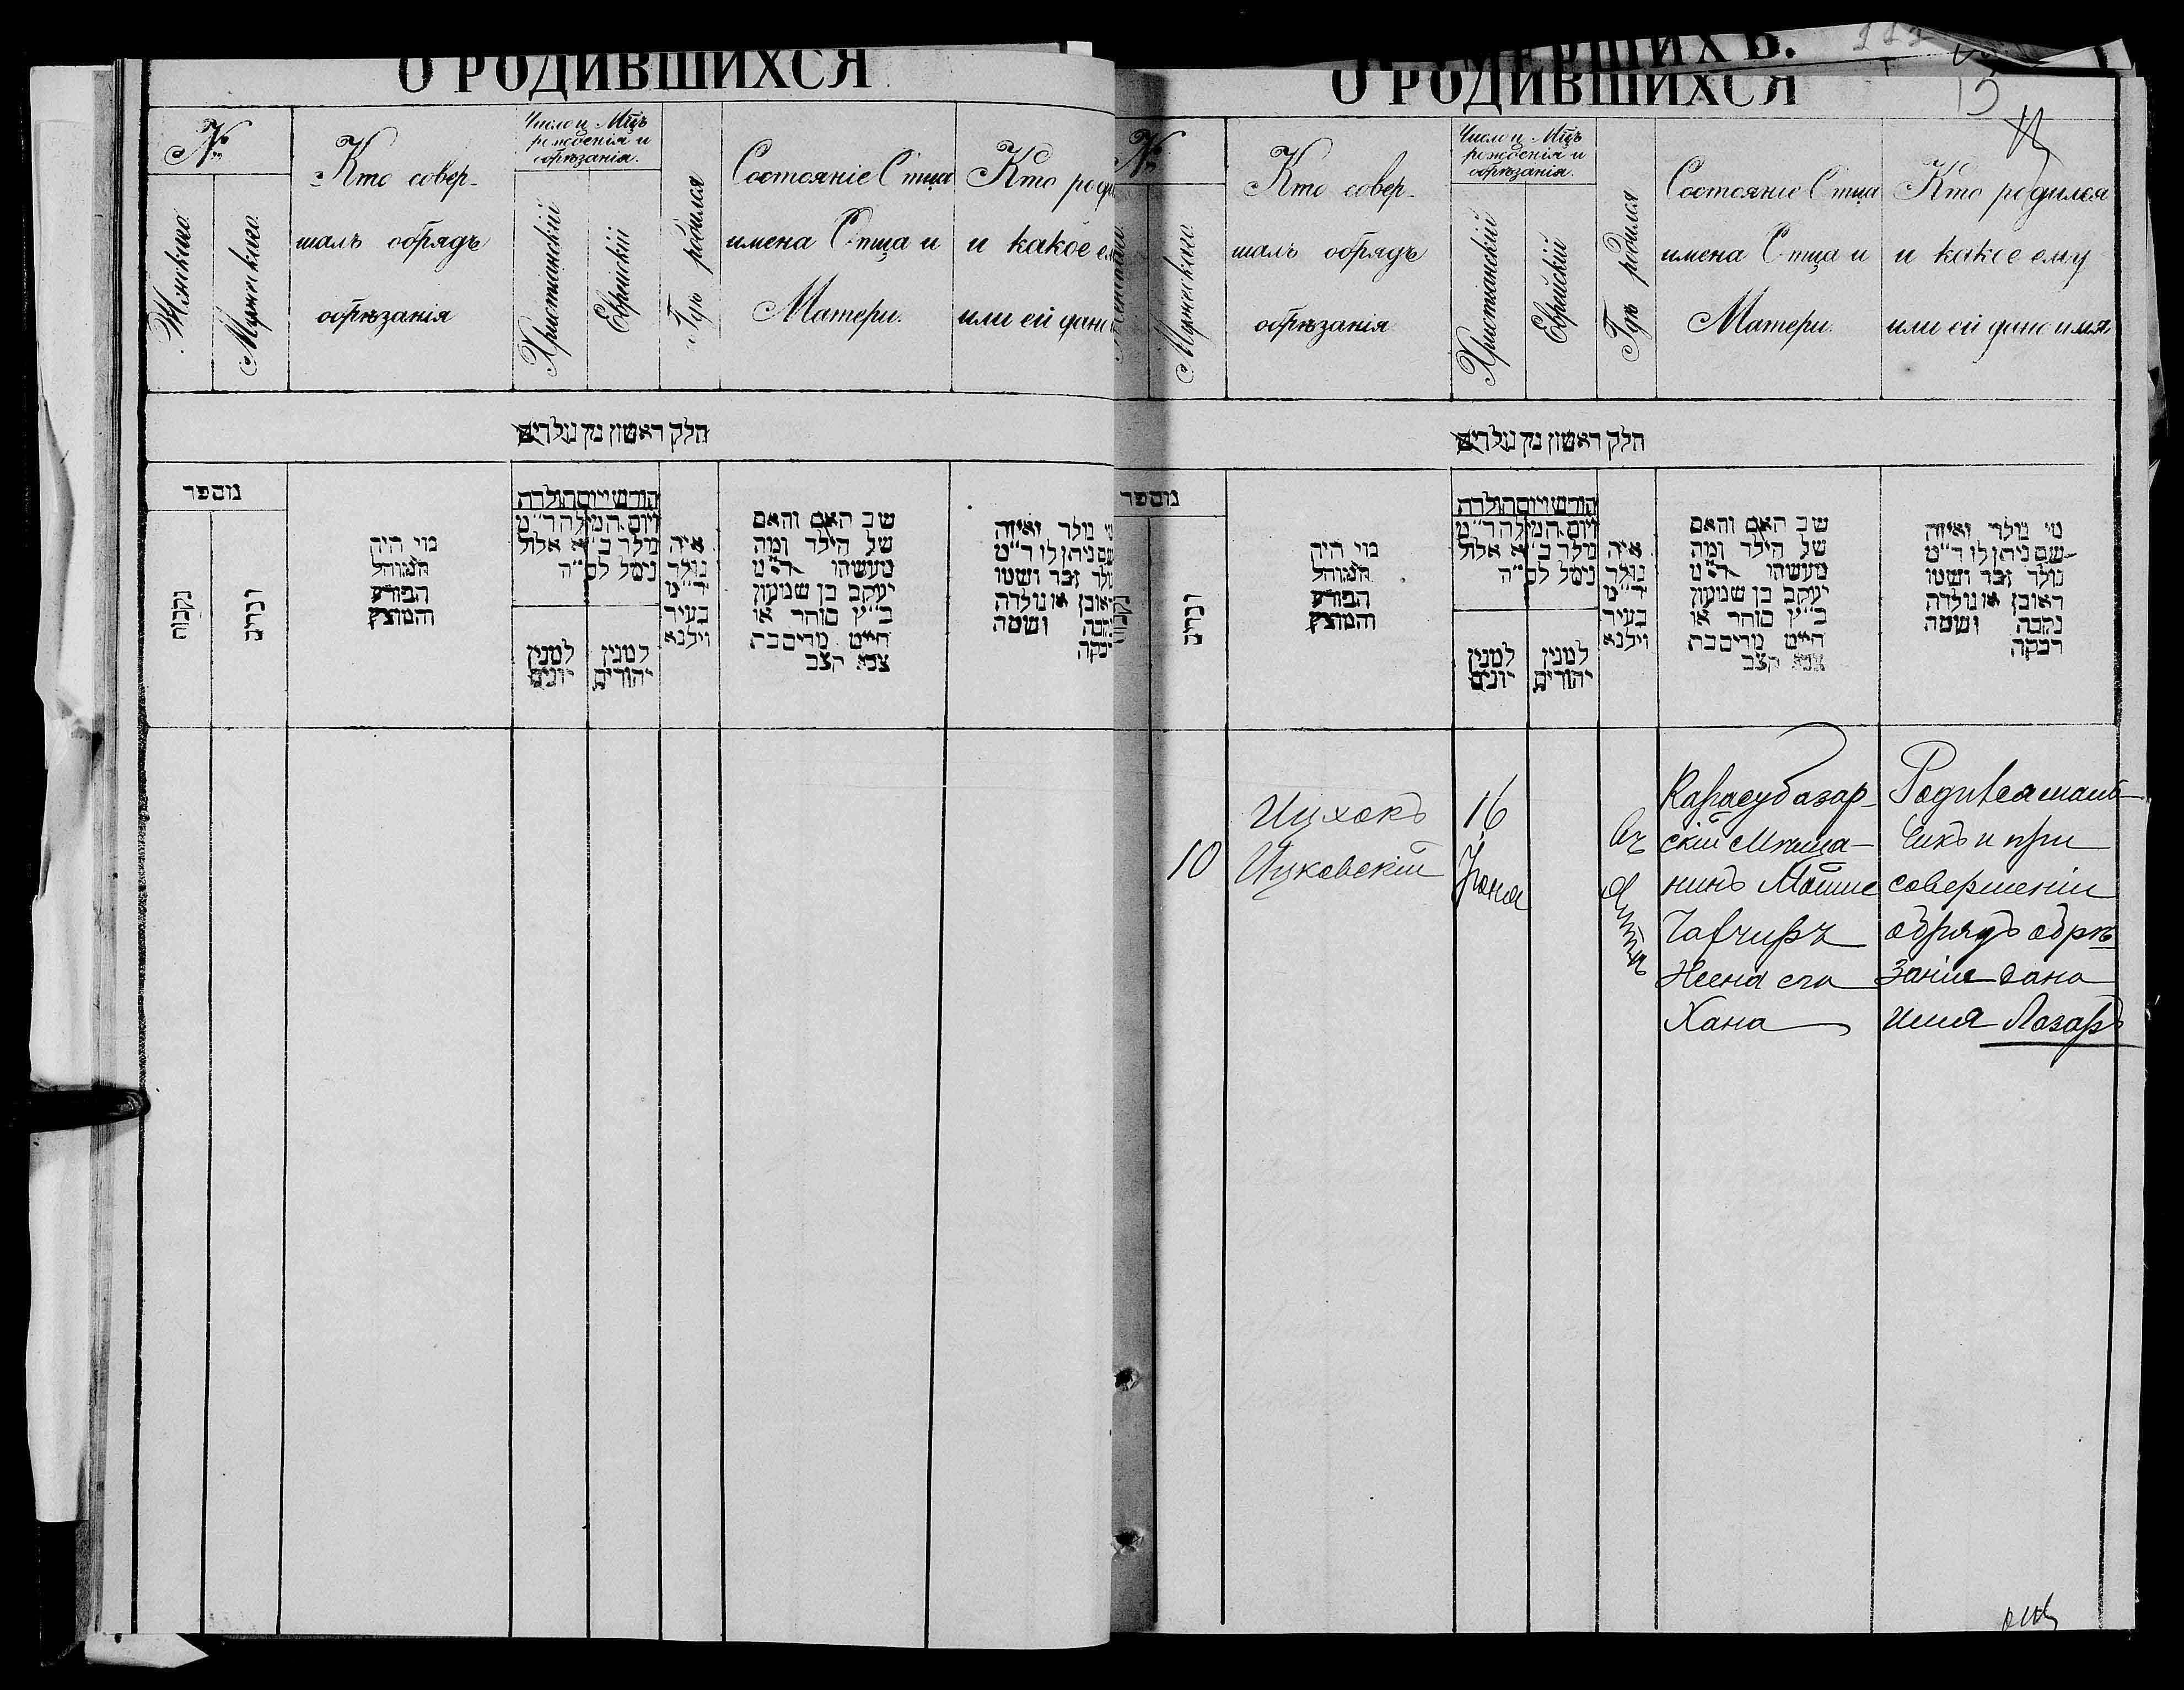 О РОДИВШИХСЯ
№
Женскаго
Мужескаго
Кто совер-
шалъ обрядъ
обрѣзанія
Число и Мцъ
рожденія и
обрѣзанія.
Христіанскій
Еврейскій
Гдѣ родился
Состояніе Отца
имена Отца и
Матери.
Кто роди
и какое ем
или ей дано
חלק ראשון מן נולדים
מספר
נקבות
זכרים
מי היה
המוהל
הפורע
והמוצץ
חודש ויום הולדת
ויום המילה ד״מ
נולד ב׳ א אלול
נימל לס״ה
למנין
יונים
למנין
יהודים
איה
נולד
ד״מ
בעיר
וילנא
שב האם והאם
של הילד ומה
מעשהו ד״מ
יעקב בן שמעון
כ״ץ סוחר או
חייט מרים בת
צבא קצב
מי נולד ואיזה
שם ניתן לו ד״מ
נולד זכר ושמו
ראובן או נולדה
נקבה ושמה
רבקה
О РОДИВШИХСЯ
13
№
Мужескаго
Кто совер-
шалъ обрядъ
обрѣзанія
Число и Мцъ
рожденія и
обрѣзанія.
Христіанскій
Еврейскій
Гдѣ родился
Состояніе Отца
имена Отца и
Матери.
Кто родился
и какое ему
или ей дано имя.
חלק ראשון מן נולדים
מספר
זכרים
מי היה
המוהל
הפורע
והמוצץ
חודש ויום הולדת
ויום המילה ד״מ
נולד ב׳ א אלול
נימל לס״ה
למנין
יונים
למנין
יהודים
איה
נולד
ד״מ
בעיר
וילנא
שב האם והאם
של הילד ומה
מעשהו ד״מ
יעקב בן שמעון
כ״ץ סוחר או
חייט מרים בת
צבא קצב
מי נולד ואיזה
שם ניתן לו ד״מ
נולד זכר ושמו
ראובן או נולדה
נקבה ושמה
רבקה
10
Ицхокъ
Ицковскій
16
Іюня
въ
Ялтѣ
Карасубазар-
скій Мѣща-
нинъ Мошше
Чапчиръ
Жена его
Хана
Родився маль-
чикъ и при
совершеніи
обрядъ обрѣ
занія дано
имя Лазарь